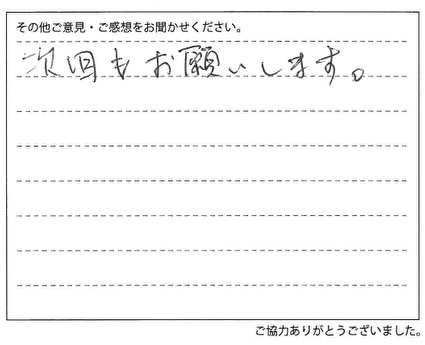 その他ご意見・ご感想をお聞かせください。
次回もお願いします。
ご協力ありがとうございました。